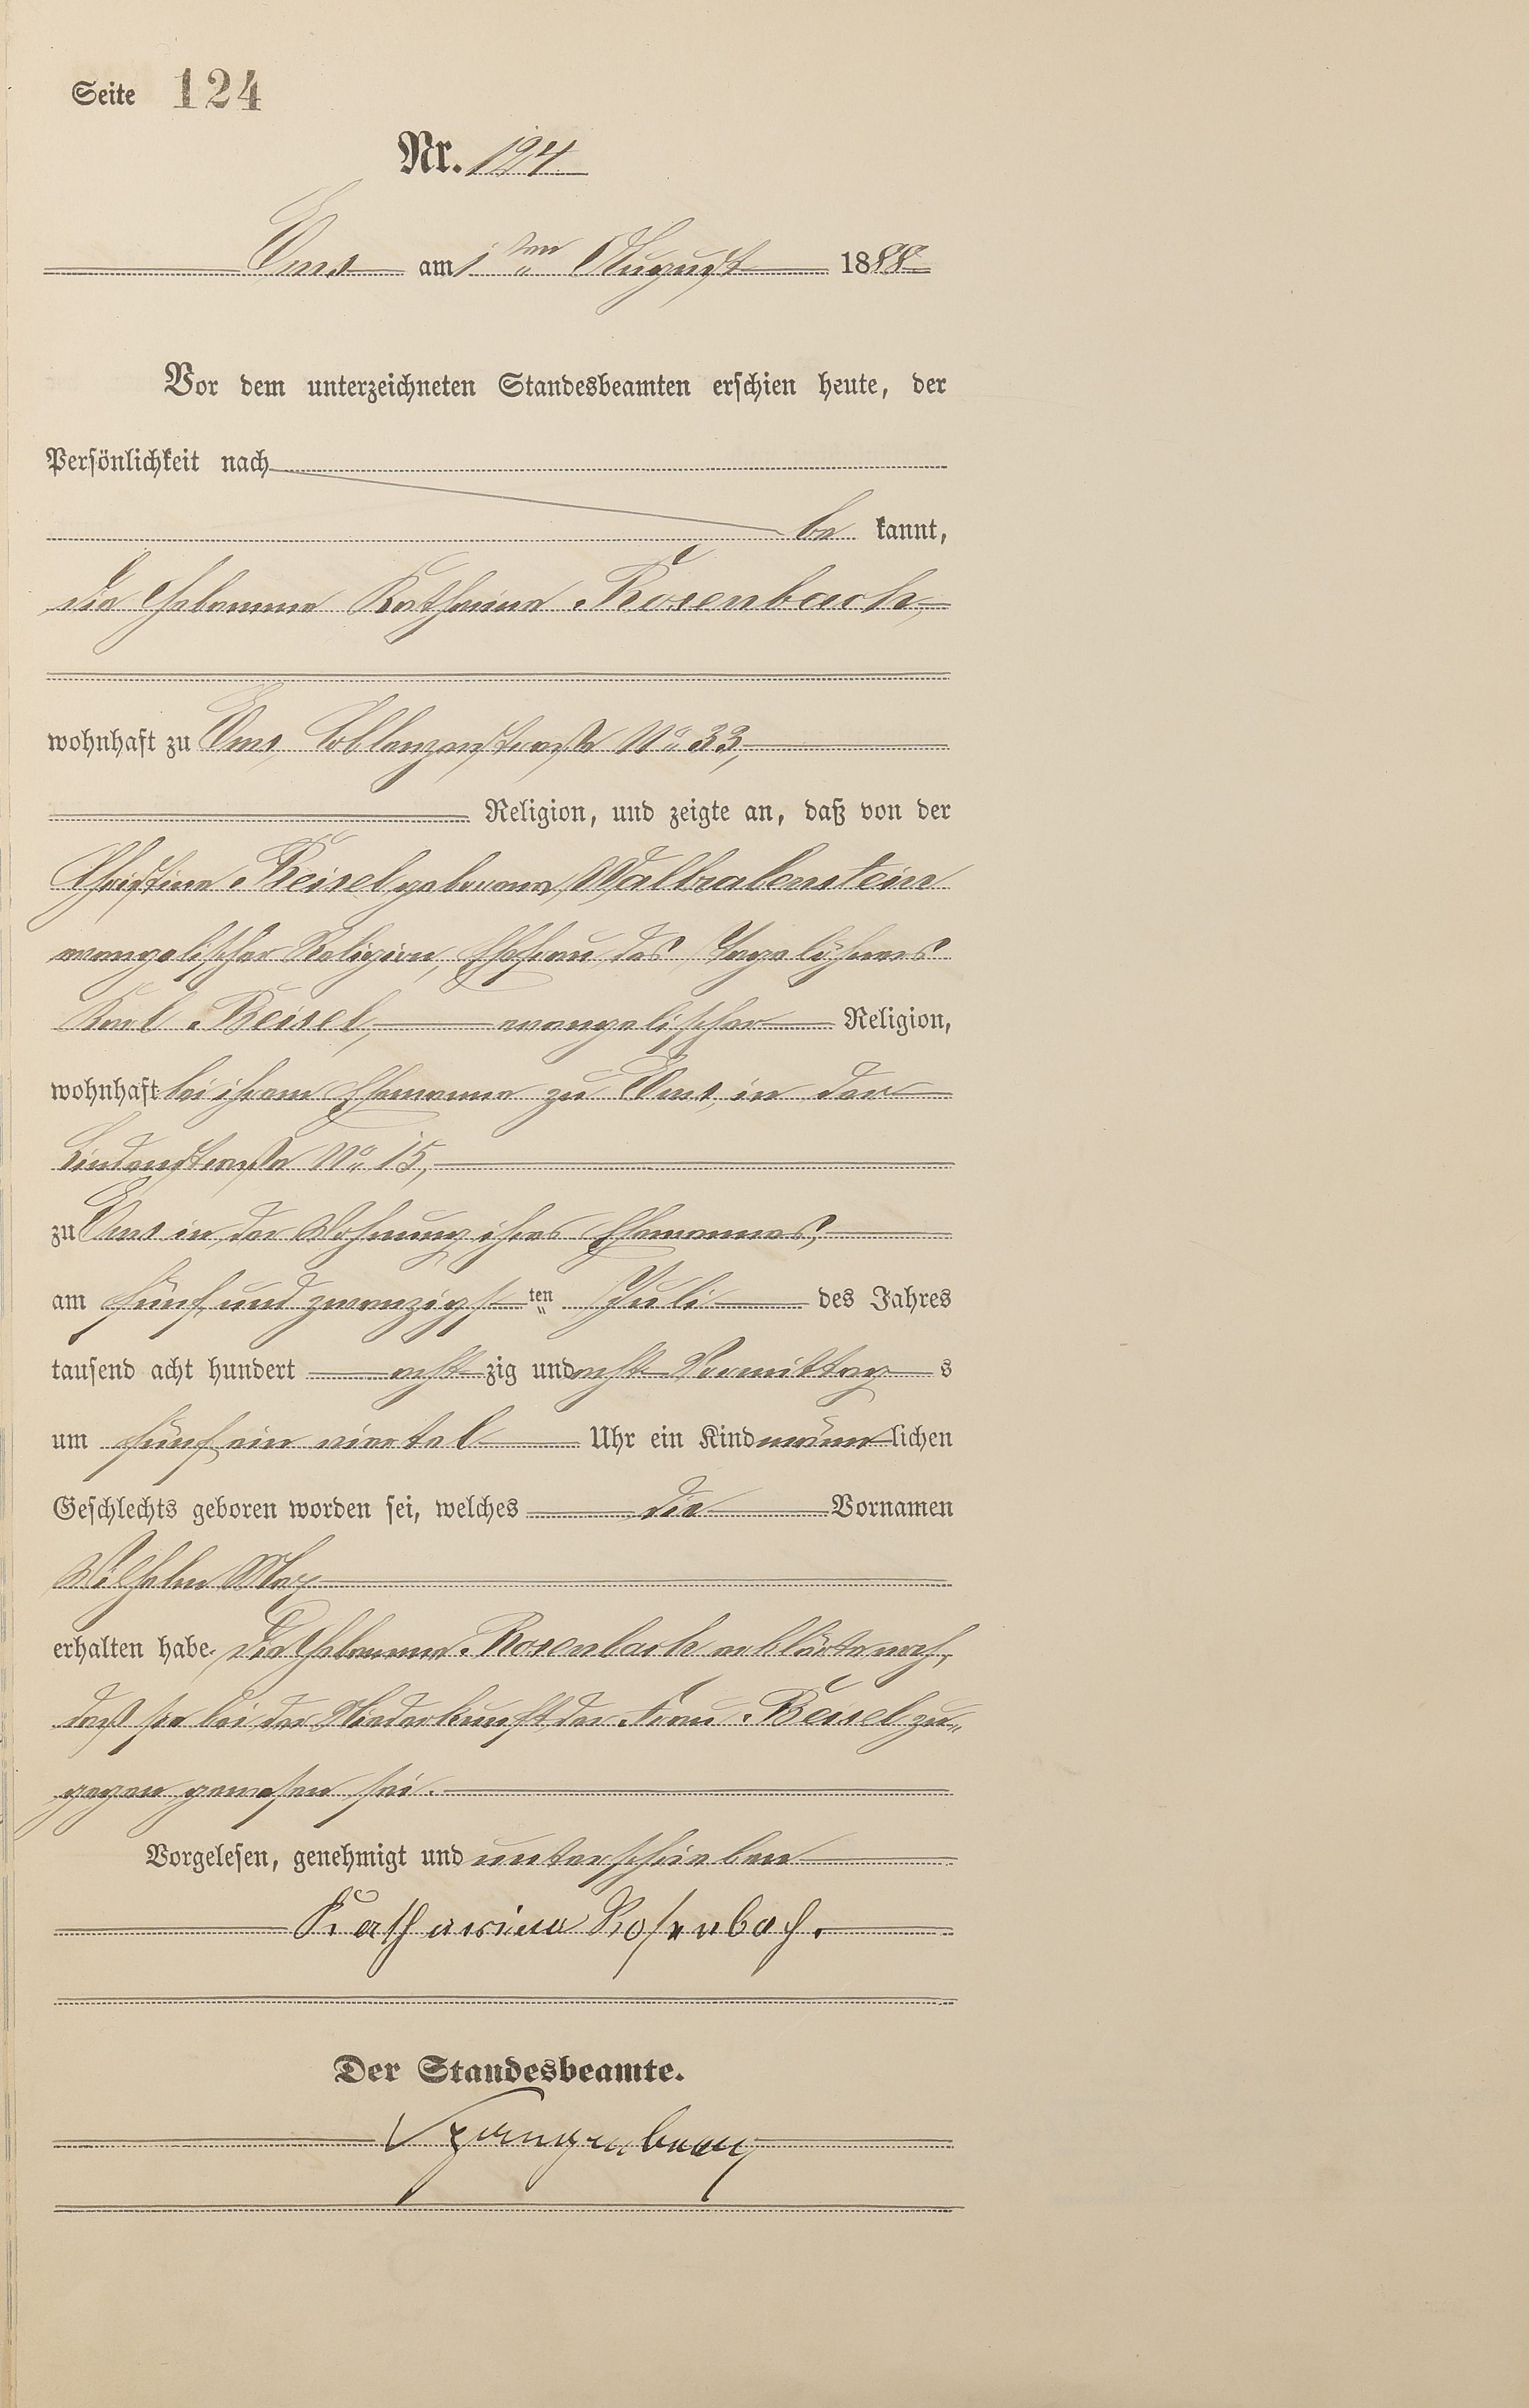 Seite 124
Nr. 124
Ems am 1ten August 1888
Vor dem unterzeichneten Standesbeamten erschien heute, der
Persönlichkeit nach
be kannt,
die Hebamme Katharina Rosenbach,
wohnhaft zu Ems, Coblenzerstraße No 33,
Religion, und zeigte an, daß von der
Christine Reisel geborene Walbrabenstein
evangelischer Religion, Ehefrau des Tagelöhners
Karl Reisel, evangelischer Religion,
wohnhaft bei ihrem Ehemanne zu Ems, in der
Lindenstraße No 15,
zu Ems in der Wohnung ihres Ehemannes,
am fünf und zwanzigsten Juli des Jahres
tausend acht hundert acht zig und acht Vormittag s
um fünf ein viertel Uhr ein Kind männlichen
Geschlechts geboren worden sei, welches die Vornamen
Wilhelm Max
erhalten habe. Die Hebamme Rosenbach erklärte noch,
daß sie bei der Niederkunft der Frau Reisel zu„
gegen gewesen sei.
Vorgelesen, genehmigt und unterschrieben
Katharina Rosenbach.
Der Standesbeamte.